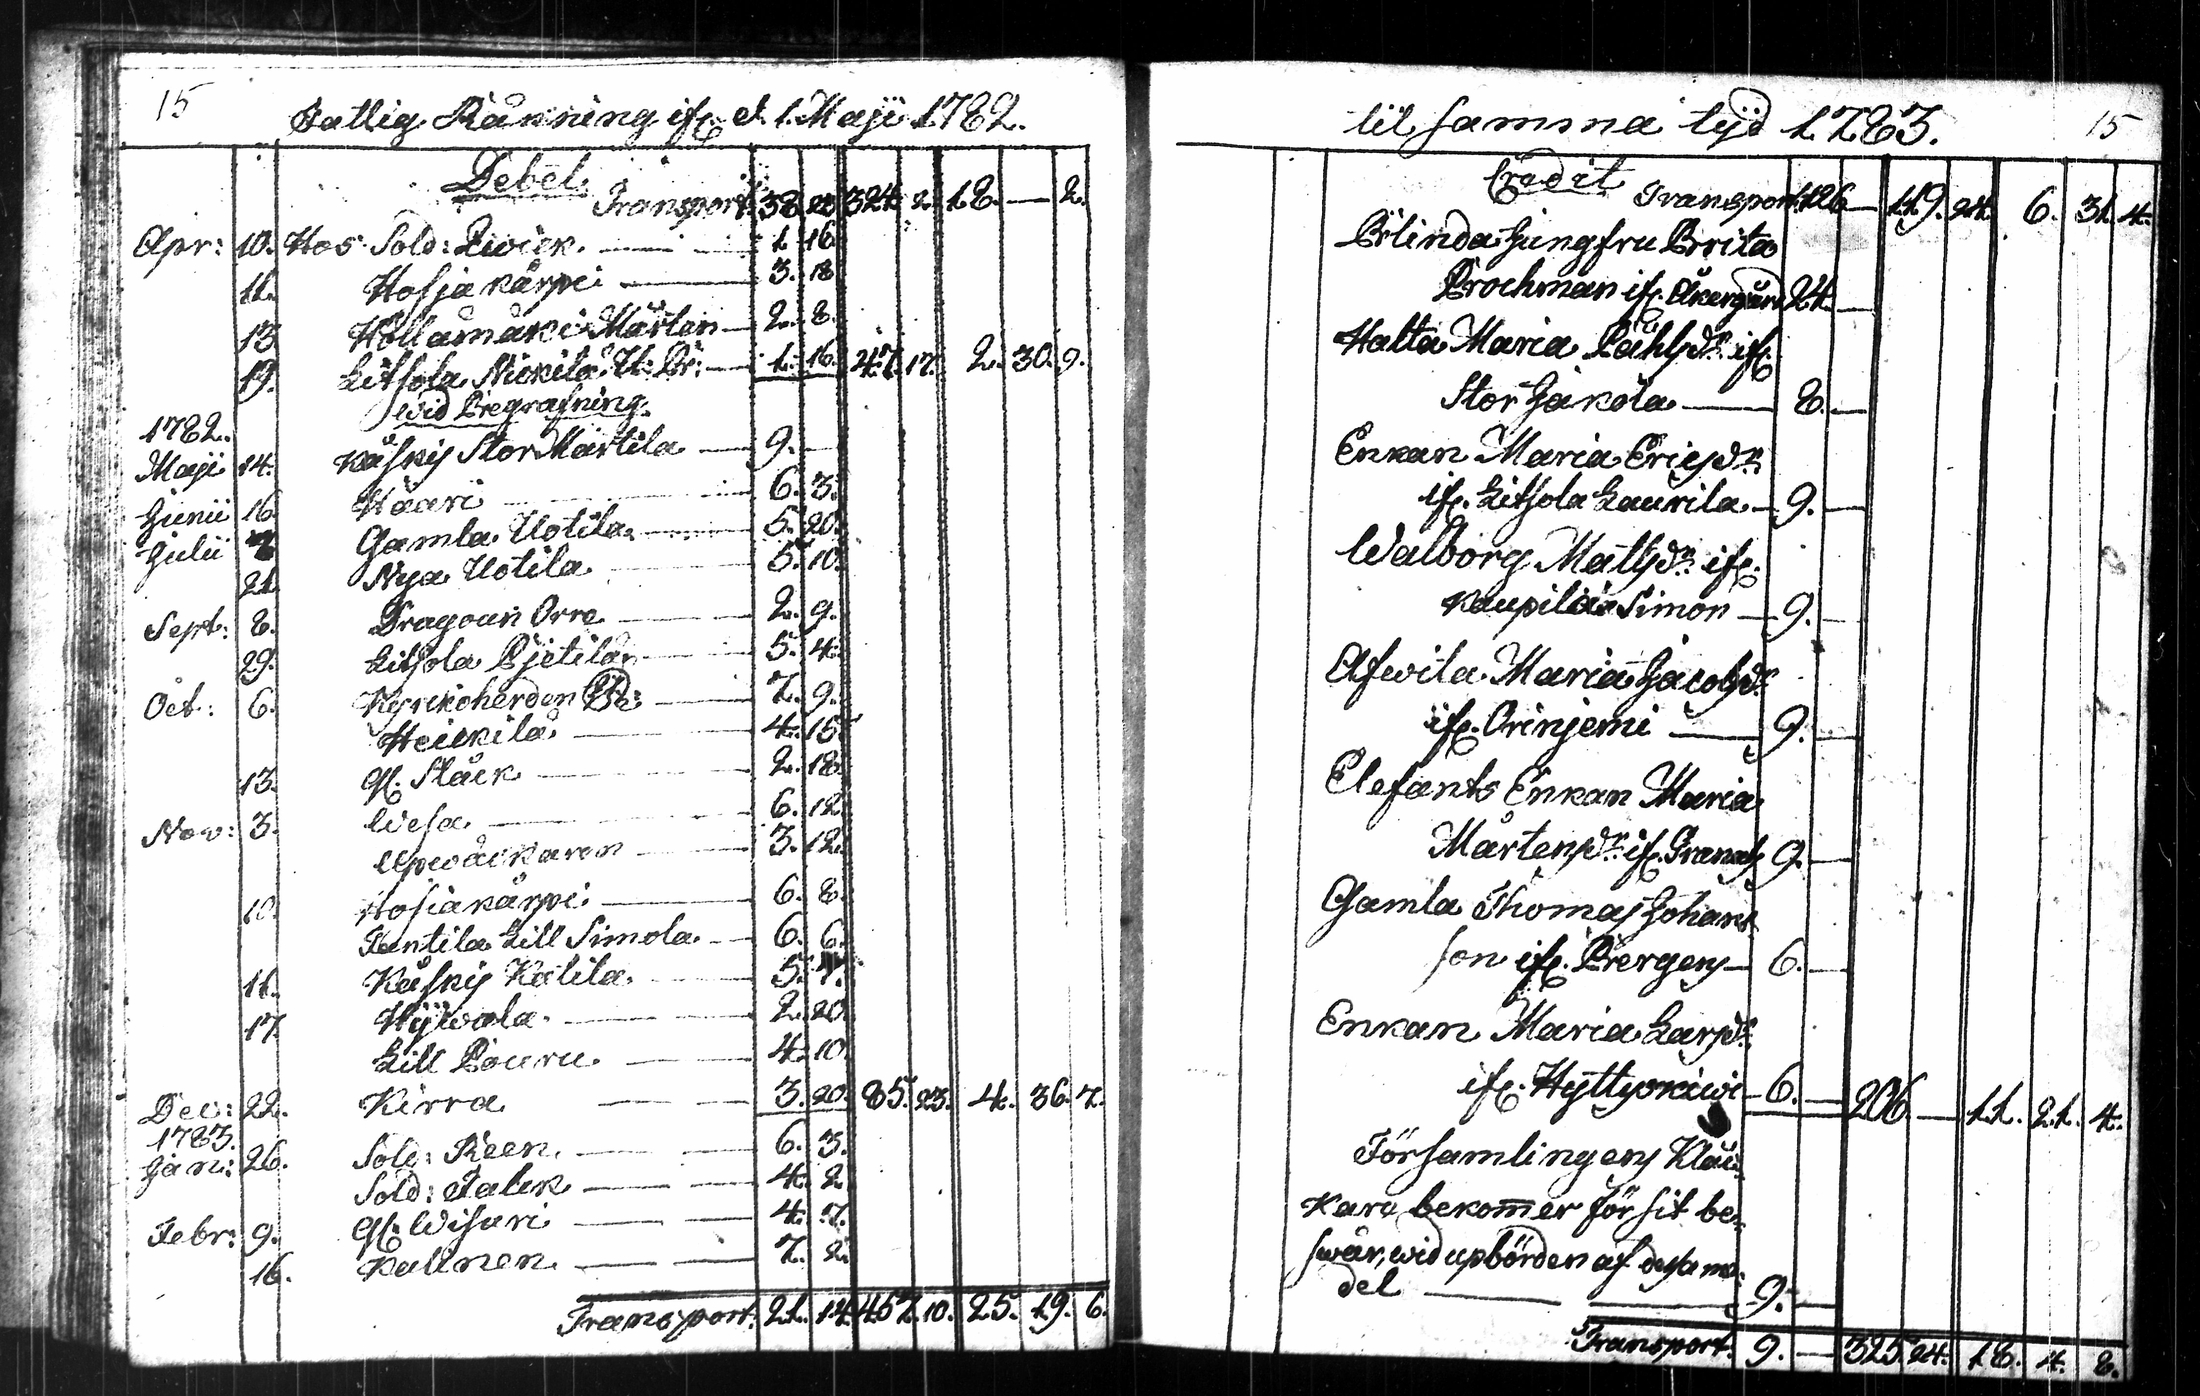 15
Fattig Räkning ifr. d. 1. Maji 1782.
Debet
Transport. 38. 20 324. 2. 18. — 2.
Apr: 10. Hos Sold: Qwick. — 1. 16
11. Hosja kärpei — 3. 18
13 Hollamäki Mårten — 2. 8.
19. Litsola Nickilä U: Br: — 1. 16. 47. 17. 2. 30. 9.
wid Begrafning.
1782.
Maji 14. Kåskis Stor Martila — 9. —
Junii 16. Haari — 6. 3.
Julii Gamla Uotila — 5. 20.
21. Nya Uotila — 5. 10.
Sept: 8. Dragoun Orre — 2. 9.
29. Litsola Pjetilä — 5. 4.
Oct: 6. Kyrkoherden — 7. 9.
Heickilä — 4. 15
13. gl. Stäck — 2. 18
Nov: 3. Wesa — 6. 12
Upwäckaren — 3. 12.
10. Hosiakärpei — 6. 8.
Pentila Lill Simola — 6. 6.
11. Kåskis Katila — 5.
17. Hyiwola — 2. 20.
Lill Pouru — 4. 10.
Dec: 22. Kirra — 3. 20. 85. 23. 4. 36. 7.
1783.
Jan: 26. Sold: Reen — 6. 3.
Sold: Falck — 4. 2
Febr: 9. gl. Wisari — 4. 7.
16. Kallnen — 7. 2.
Transport. 21. 14. 457. 10. 25. 19. 6.
til samma tijd 1783. 15
Credit
Transport 126 — 119. 24. 6. 31. 4.
Blinda Jungfru Brita
Brochman ifr. Åkergård 24. —
Halta Maria Påhlsdr. ifr.
Stor Jakola — 8. —
Enkan Maria Ericsdr.
ifr. Litsola Laurila — 9. —
Walborg Matsdr. ifr.
Kaupila Simon — 9. —
Afwita Maria Jacobsdr.
ifr. Orinjemi — 9. —
Elefants Enkan Maria
Mårtensdr. ifr. Granals 9. —
Gamla Thomas Johans
son ifr. Bergens — 6. —
Enkan Maria Larsdr.
ifr. Hyttyskiwi — 6. — 206. — 11. 21. 4.
Församlingens Kläc-
kare bekommer för sit be-
swär, wid upbörden af dessa me-
del — 9. —
Transport. 9. — 325. 24. 18. 4. 8.